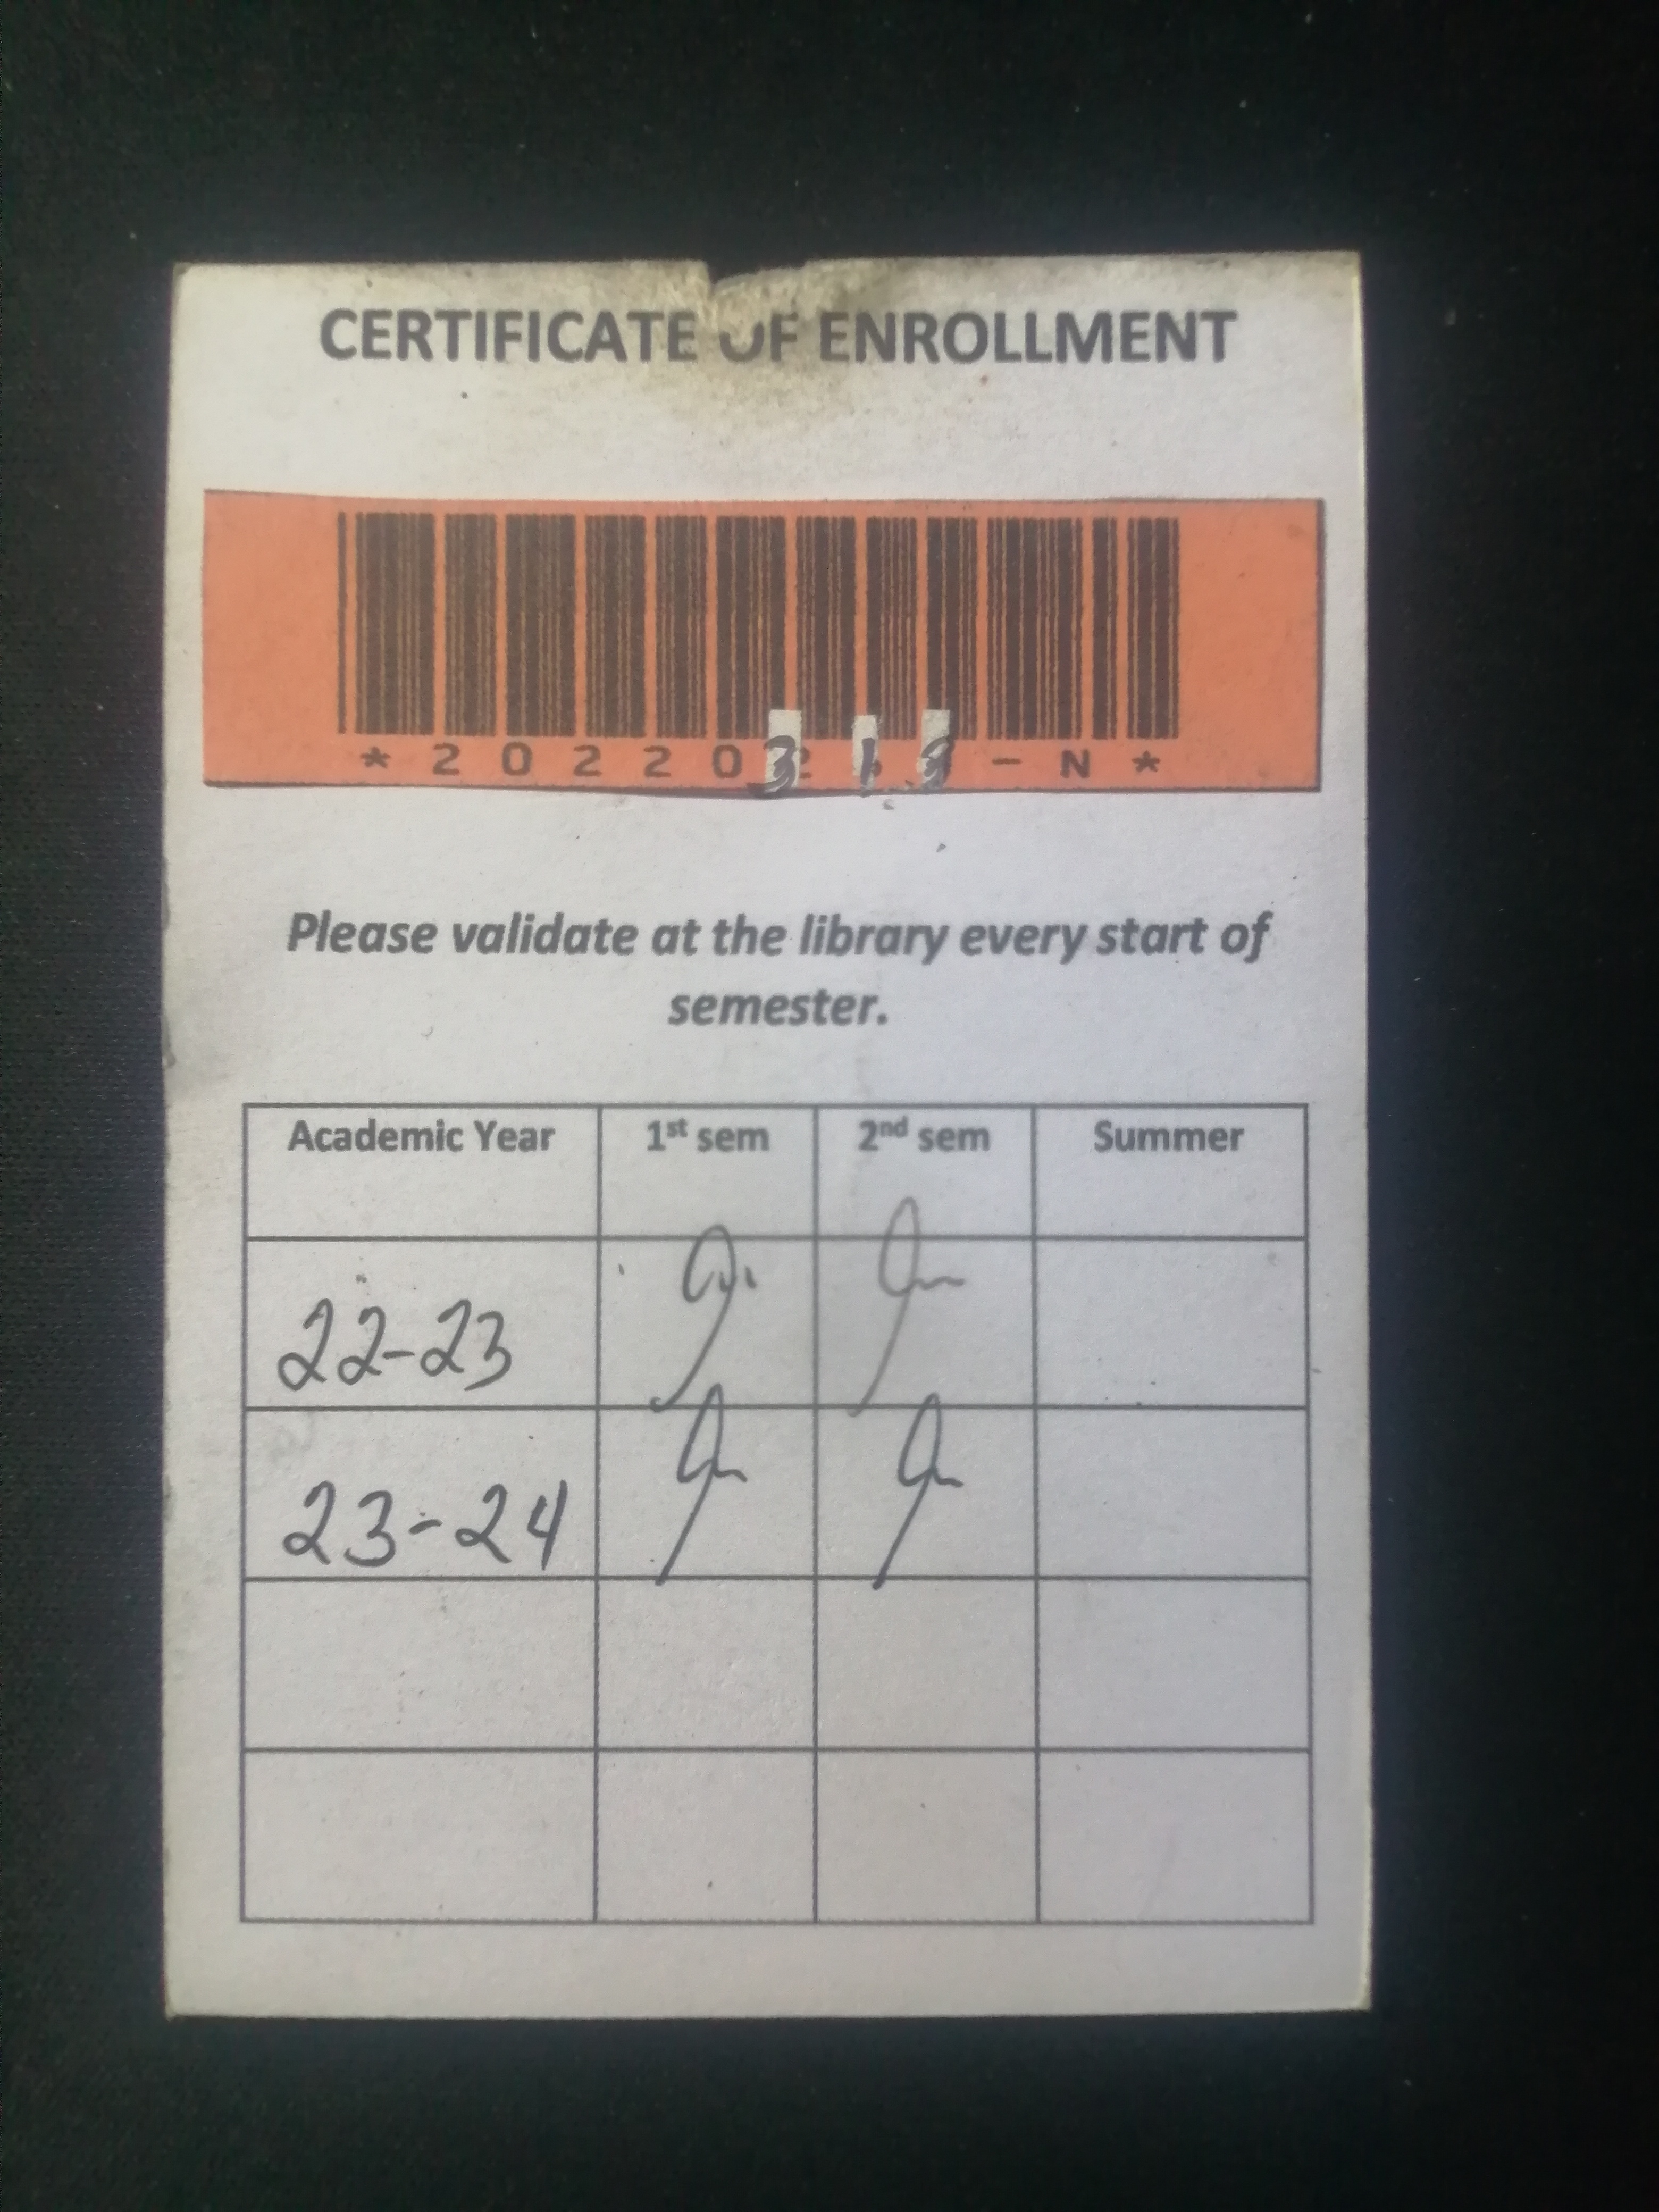 CERTIFICATE OF ENROLLMENT
Please validate at the library every start of
semester.
Academic Year 1st sem 2nd sem Summer
22-23
23-24